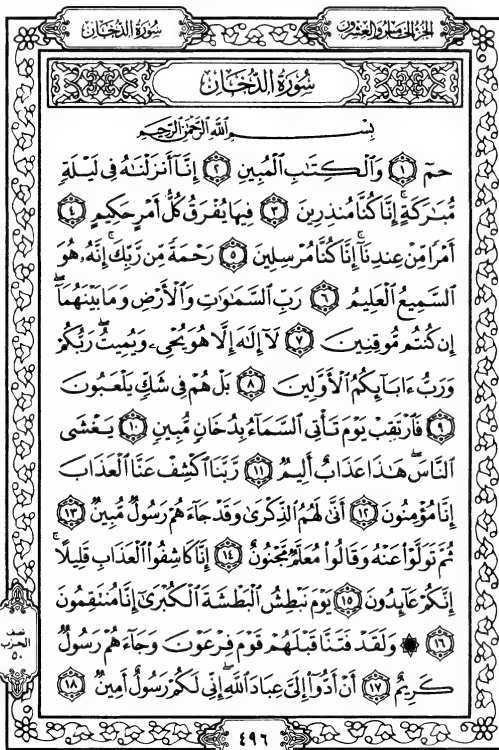 الجزء الخامس والعشرون
سورة الدخان
سُورَةُ الدُّخَانِ
بِسْمِ اللَّهِ الرَّحْمَٰنِ الرَّحِيمِ
حمٓ ١ وَالْكِتَابِ الْمُبِينِ ٢ إِنَّا أَنزَلْنَاهُ فِي لَيْلَةٍ
مُّبَارَكَةٍ ۚ إِنَّا كُنَّا مُنذِرِينَ ٣ فِيهَا يُفْرَقُ كُلُّ أَمْرٍ حَكِيمٍ ٤
أَمْرًا مِّنْ عِندِنَا ۚ إِنَّا كُنَّا مُرْسِلِينَ ٥ رَحْمَةً مِّن رَّبِّكَ ۚ إِنَّهُ هُوَ
السَّمِيعُ الْعَلِيمُ ٦ رَبِّ السَّمَاوَاتِ وَالْأَرْضِ وَمَا بَيْنَهُمَا ۖ
إِن كُنتُم مُّوقِنِينَ ٧ لَا إِلَٰهَ إِلَّا هُوَ يُحْيِي وَيُمِيتُ ۖ رَبُّكُمْ
وَرَبُّ ءَابَآئِكُمُ الْأَوَّلِينَ ٨ بَلْ هُمْ فِي شَكٍّ يَلْعَبُونَ
٩ فَارْتَقِبْ يَوْمَ تَأْتِي السَّمَاءُ بِدُخَانٍ مُّبِينٍ ١٠ يَغْشَى
النَّاسَ ۖ هَٰذَا عَذَابٌ أَلِيمٌ ١١ رَّبَّنَا اكْشِفْ عَنَّا الْعَذَابَ
إِنَّا مُؤْمِنُونَ ١٢ أَنَّىٰ لَهُمُ الذِّكْرَىٰ وَقَدْ جَاءَهُمْ رَسُولٌ مُّبِينٌ ١٣
ثُمَّ تَوَلَّوْا عَنْهُ وَقَالُوا مُعَلَّمٌ مَّجْنُونٌ ١٤ إِنَّا كَاشِفُوا الْعَذَابِ قَلِيلًا ۚ
إِنَّكُمْ عَائِدُونَ ١٥ يَوْمَ نَبْطِشُ الْبَطْشَةَ الْكُبْرَىٰ إِنَّا مُنتَقِمُونَ
١٦ ۞ وَلَقَدْ فَتَنَّا قَبْلَهُمْ قَوْمَ فِرْعَوْنَ وَجَاءَهُمْ رَسُولٌ
كَرِيمٌ ١٧ أَنْ أَدُّوا إِلَيَّ عِبَادَ اللَّهِ ۖ إِنِّي لَكُمْ رَسُولٌ أَمِينٌ ١٨
نصف
الحزب
٥٠
٤٩٦